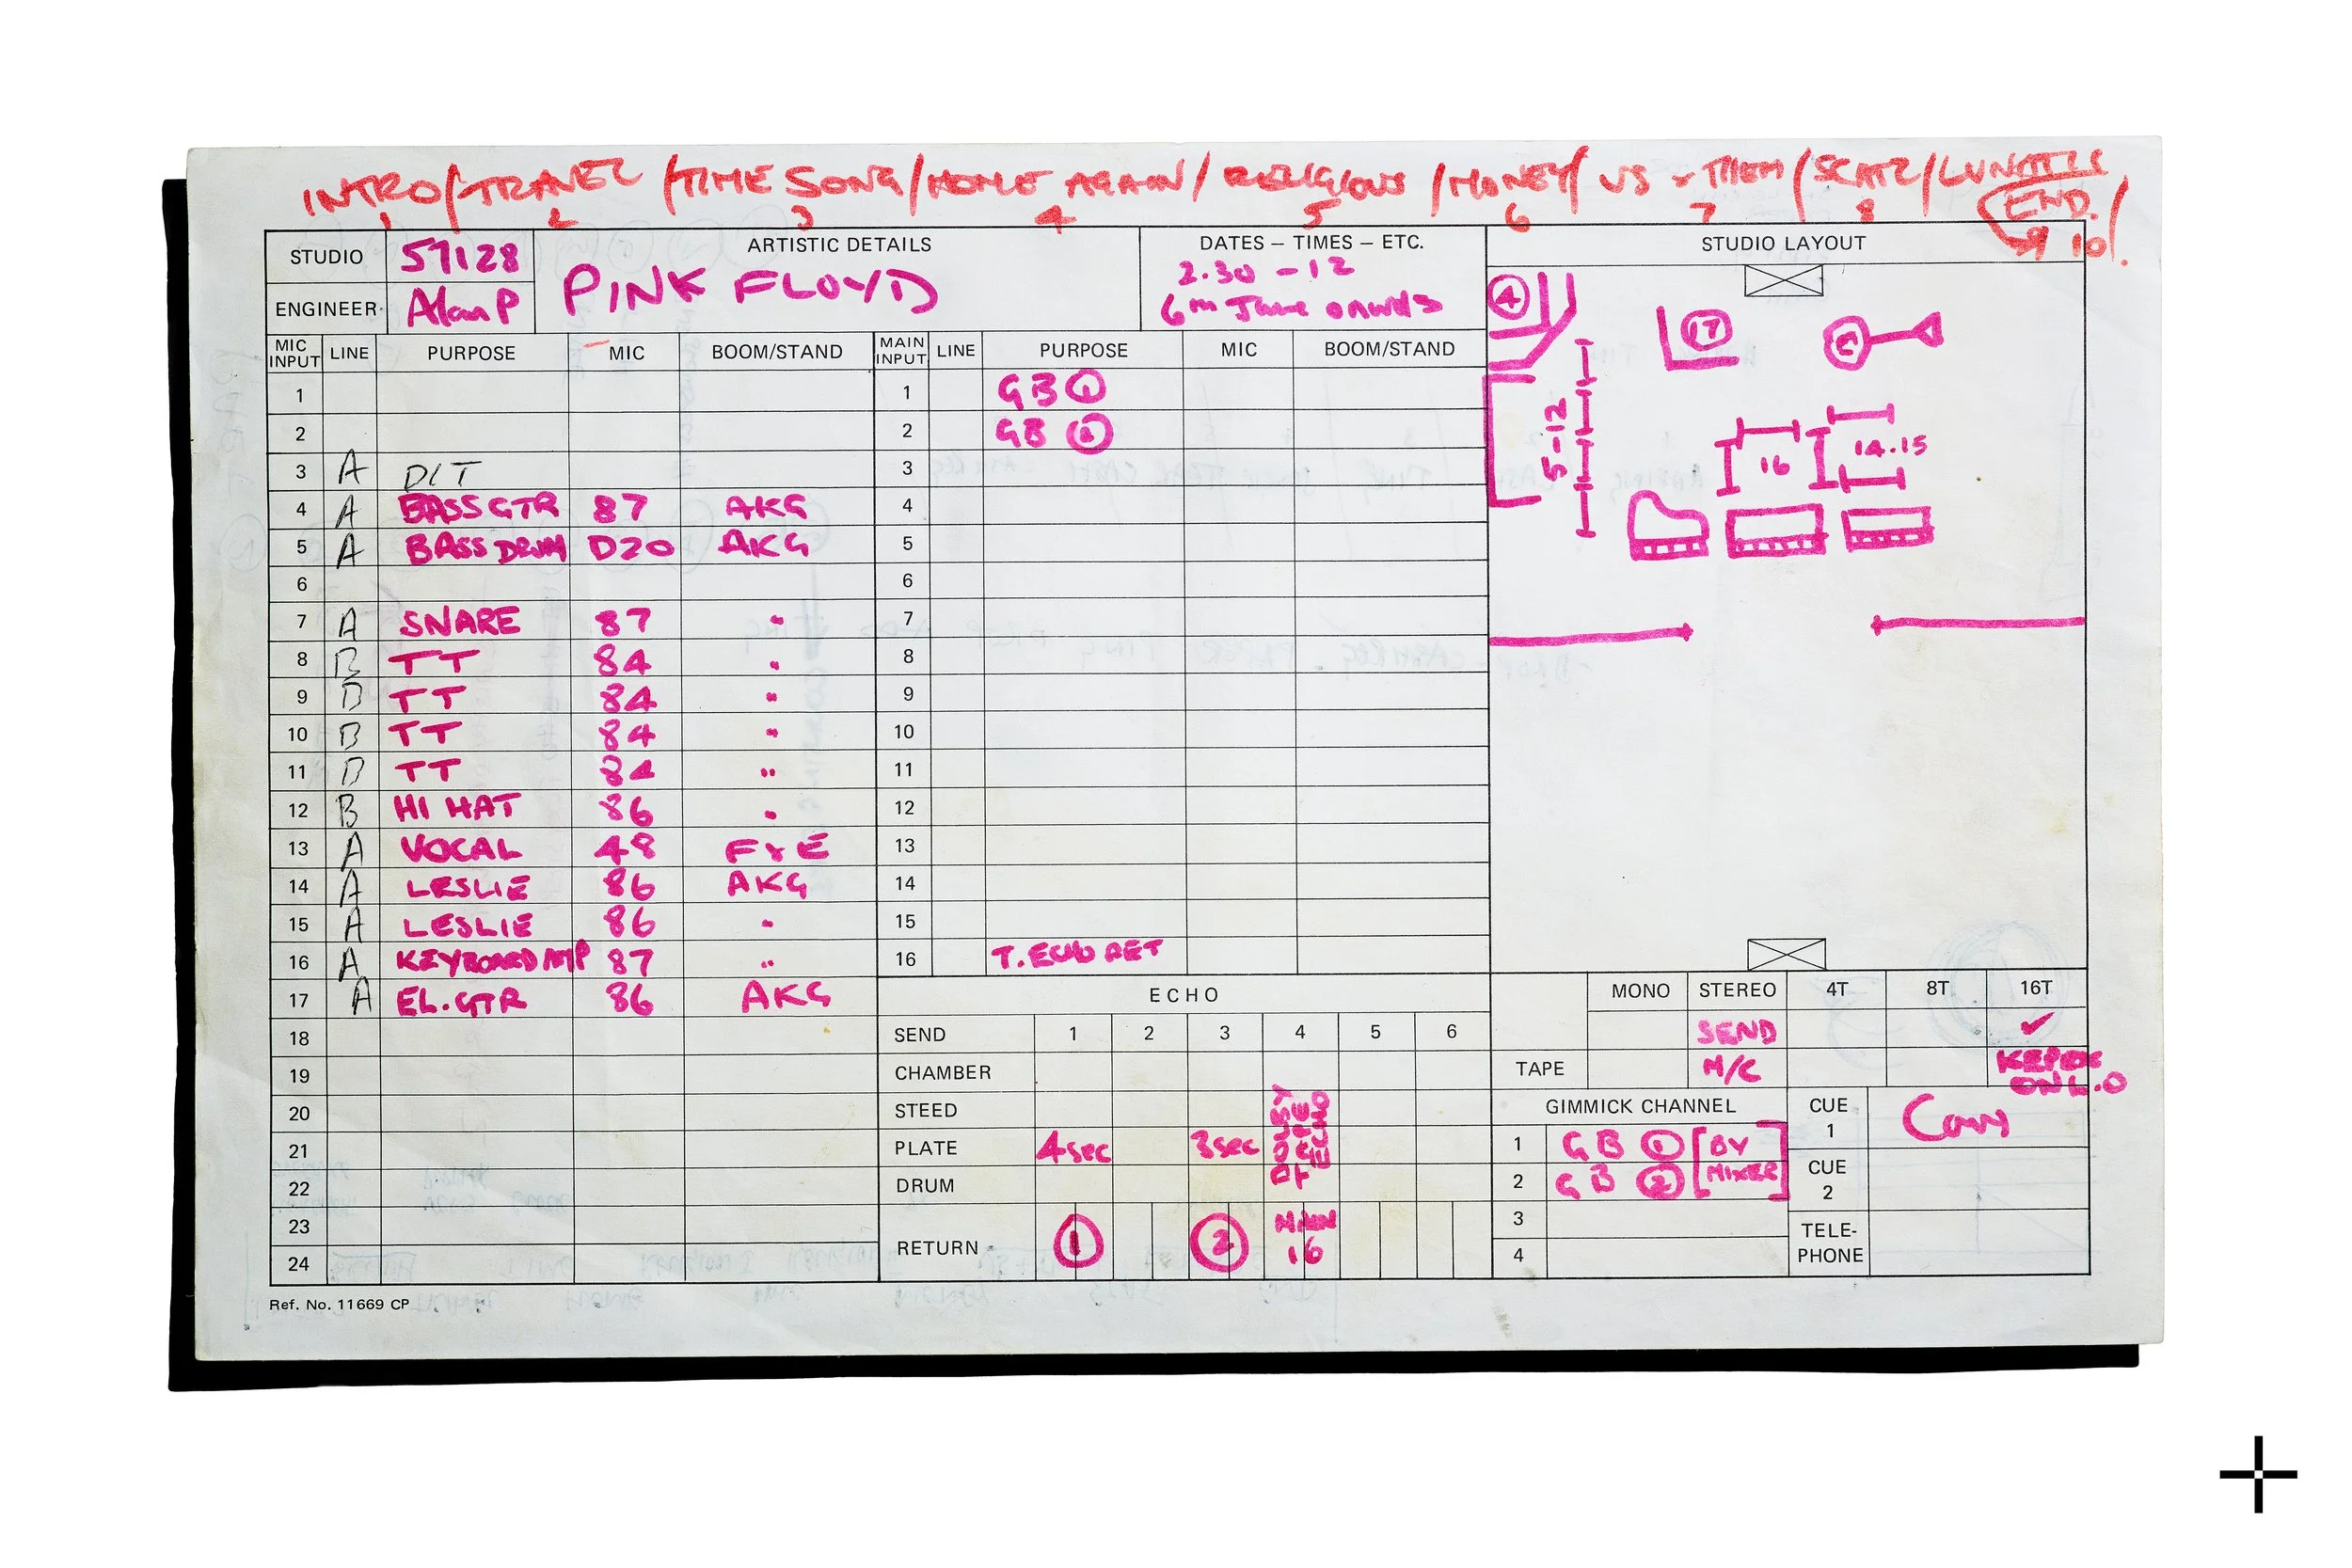 INTRO/TRAVEL/TIME SONG/HOME AGAIN/RELIGIOUS/MONEY/US + THEM/SCAT2/LUNATICS
END.
1 2 3 4 5 6 7 8 9 10
STUDIO 57128
ENGINEER Alan P
ARTISTIC DETAILS
PINK FLOYD
DATES – TIMES – ETC.
2.30 – 12
6th June onwards
STUDIO LAYOUT
MIC INPUT LINE PURPOSE MIC BOOM/STAND
1
2
3 A DIT
4 A BASS GTR 87 AKG
5 A BASS DRUM D20 AKG
6
7 A SNARE 87 "
8 B TT 84 "
9 B TT 84 "
10 B TT 84 "
11 B TT 84 "
12 B HI HAT 86 "
13 A VOCAL 48 F+E
14 A LESLIE 86 AKG
15 A LESLIE 86 "
16 A KEYBOARD AMP 87 "
17 A EL.GTR 86 AKG
18
19
20
21
22
23
24
MAIN INPUT LINE PURPOSE MIC BOOM/STAND
1 GB 1
2 GB 2
3
4
5
6
7
8
9
10
11
12
13
14
15
16 T. ECHO RET
ECHO
SEND 1 2 3 4 5 6
CHAMBER
STEED
PLATE 4sec 3sec
DRUM
DOLBY TAPE ECHO
RETURN 1 2 MAIN 16
4
17
5-12
16
14.15
MONO STEREO 4T 8T 16T
SEND ✓
TAPE M/C KEPEX ON L.O
GIMMICK CHANNEL
1 GB 1 [BY
2 GB 2 MIXER]
3
4
CUE 1
CUE 2
TELE-
PHONE
Ref. No. 11669 CP